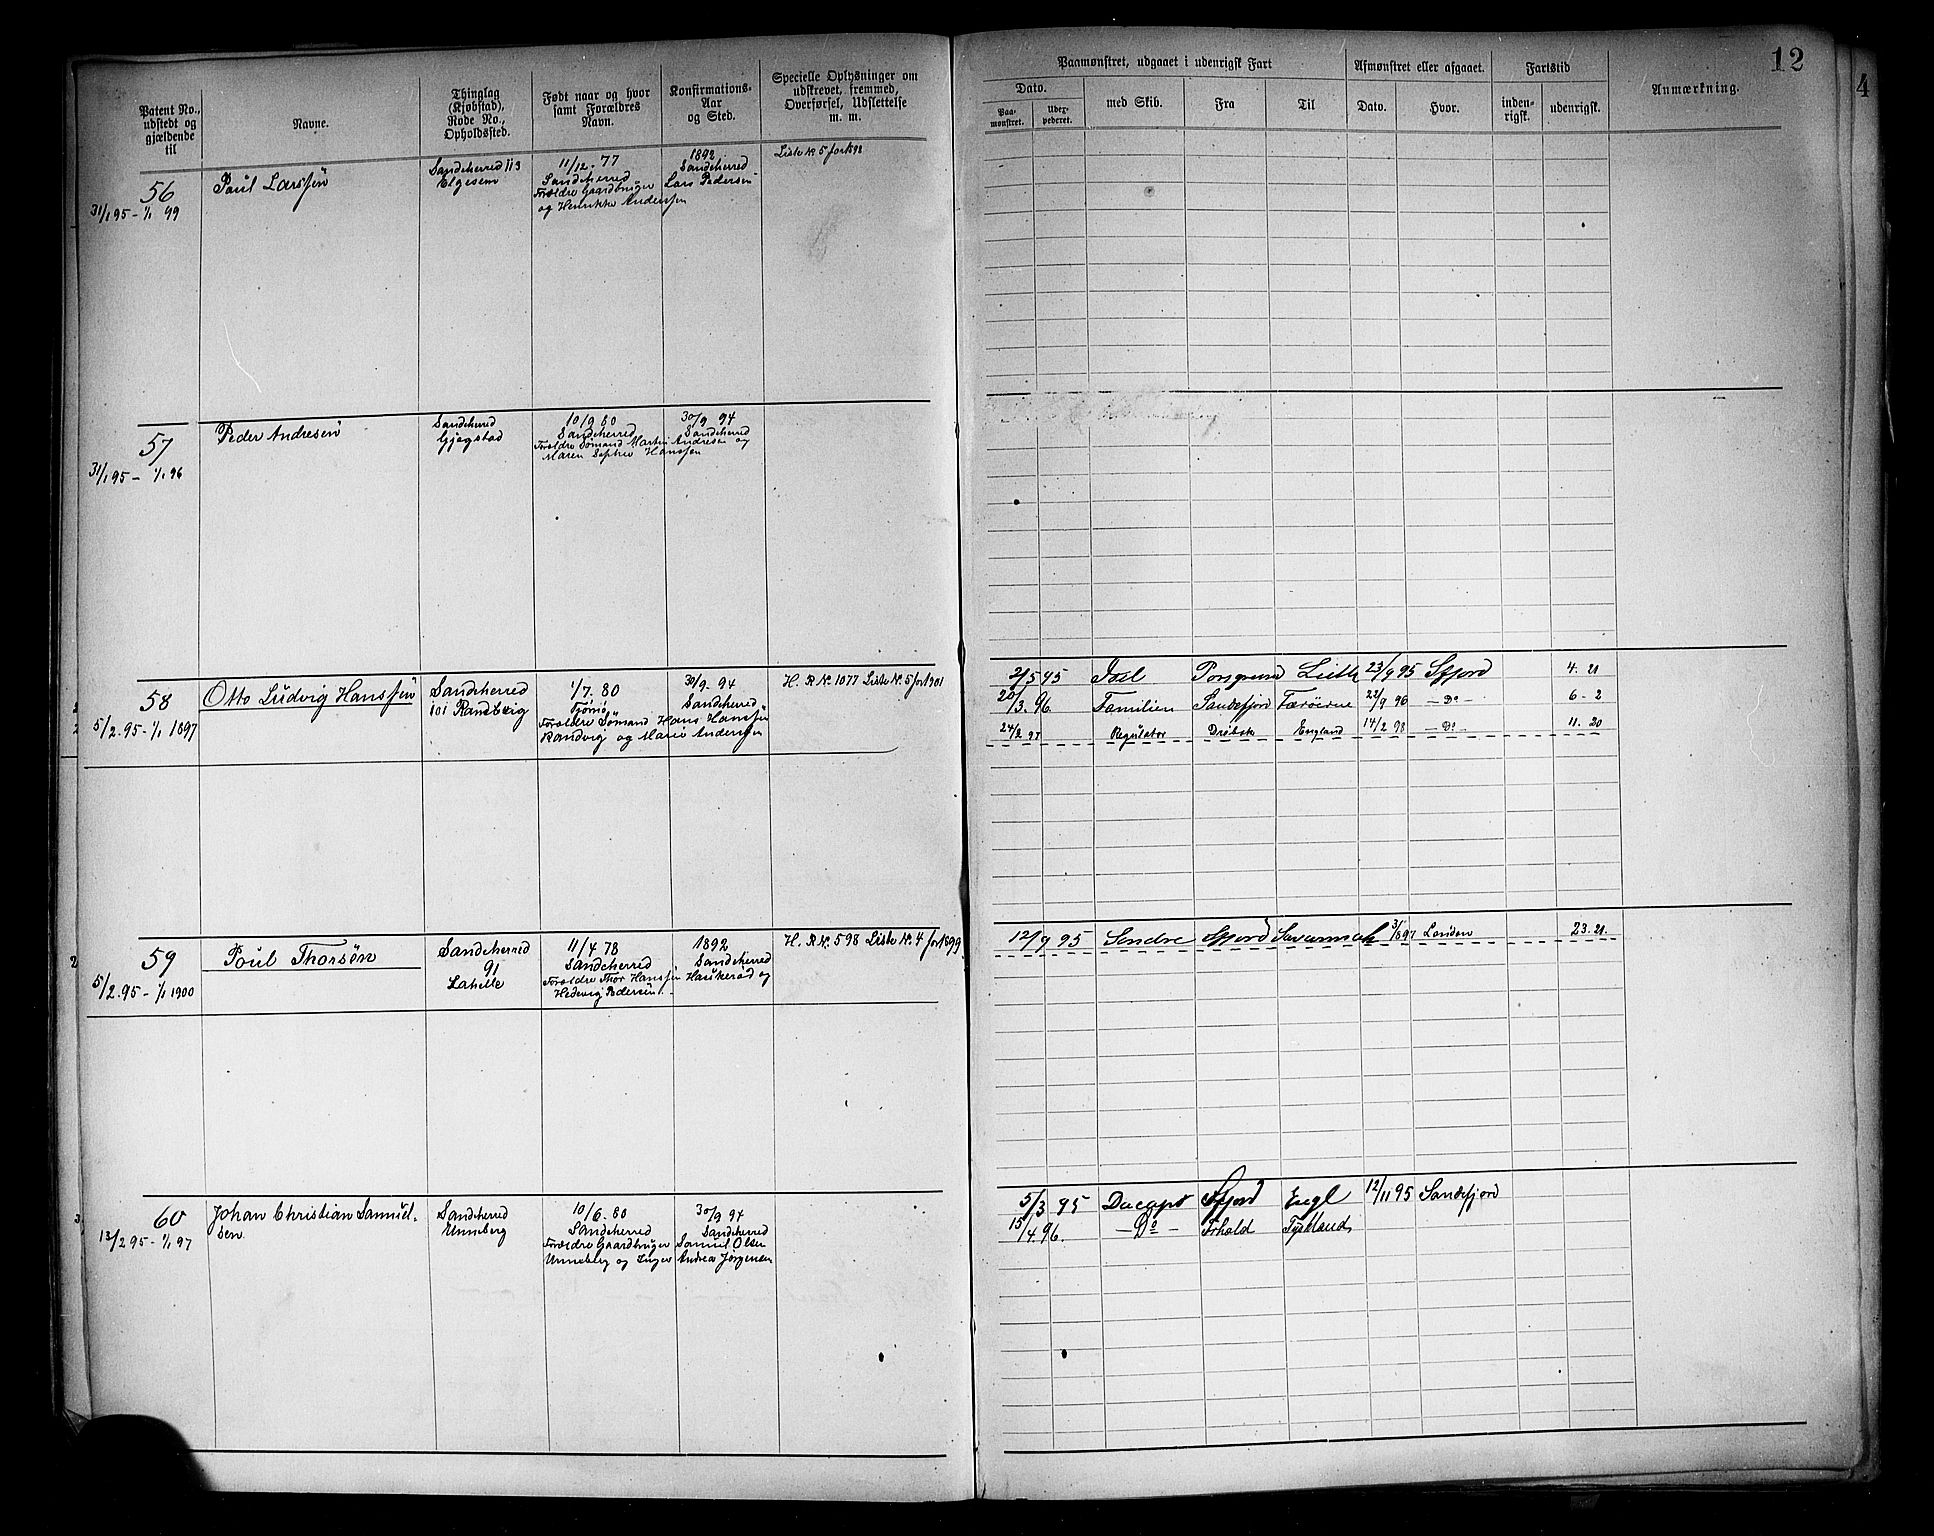 12
4
Patent No., udstedt og gjældende til
Navne.
Thinglag (Kjøbstad), Rode No., Opholdssted.
Født naar og hvor samt Forældres Navn.
Konfirmations-Aar og Sted.
Specielle Oplysninger om udskrevet, fremmed, Overførsel, Udslettelse m. m.
Paamønstret, udgaaet i udenrigsk Fart
Afmønstret eller afgaaet.
Fartstid
Anmærkning.
Dato.
med Skib.
Fra
Til
Dato.
Hvor.
inden-rigsk.
udenrigsk.
Paa-mønstret.
56
31/1 95 - 1/1 99
Paul Larssen
Sandeherred 113
Elgesem
11/12-77
Sandeherred
Forældre Gaardbruger Lars Pedersen
og Henrikke Anderssen
1892
Sandeherred
Liste № 5 for 1898
57
31/1 95 - 1/1 96
Peder Andresen
Sandeherred
Gjegstad
10/9 80
Sandeherred
Forældre Sømand Martin Andresen og
Maren Sophie Hanssen
30/9 94
Sandeherred
58
5/2.95 - 1/1 1897
Otto Ludvig Hanssen
Sandeherred
101 Ranvig
1/7. 80
Tjømø
Forældre Sømand Hans Hanssen
Randvig og Marie Anderssen
30/9-94
Sandeherred
H. R №. 1077 Liste №. 5 for 1901
2/5 95 Porsgrund Leith 23/9 95 Sfjord 4. 21
20/3. 96 Familien Sandefjord Færøerne 22/9 96 - Do - 6 - 2
24/2 97 Regulator Drøbak England 14/2 98 - Do - 11. 20
59
5/2.95 - 1/1 1900
Poul Thorsen
Sandeherred
91
Lahelle
11/4 78
Sandeherred
Forældre Thor Hanssen Haukerød og
Hedevig Pedersen
1892
Sandeherred
H. R №. 598 Liste №. 4 for 1899
12/9 95 Sondre Sfjord 31/8 97 London 23. 21.
60
13/2 95 - 1/1 97
Johan Christian Samuel-
sen
Sandeherred
Unneberg
10/6. 80
Sandeherred
Forældre Gaardbruger Samuel Olsen
Unneberg og Inger Andrea Jørgensen
30/9 94
Sandeherred
5/3 95 Dacapo Sfjord Engl 12/11 95 Sandefjord
15/4.96. - Do - Tydsland